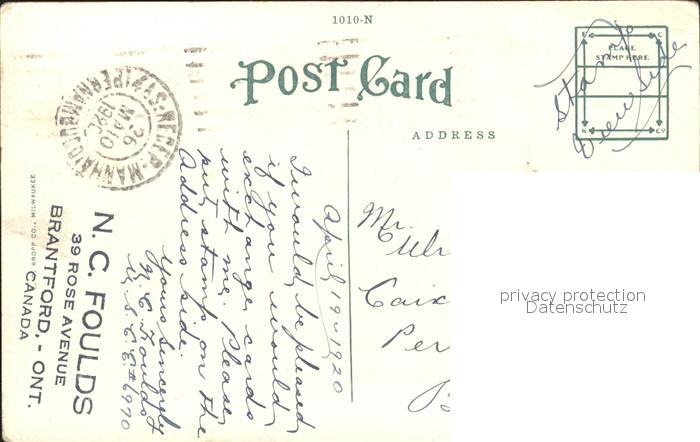 1010-N
Post Card
ADDRESS
PLACE
STAMP HERE
E C
K Co
Stamp
View Side
April 19-1920
I would be pleased
if you would
exchange cards
with me. Please
put stamp on the
Address side.
Yours sincerely
N. C. Foulds
U.S.C.C.E. # 6970
Mr.
Ulr
Caix
Per
26
MAIO
192
N. C. FOULDS
39 ROSE AVENUE
BRANTFORD, - ONT.
CANADA
KROPP CO., MILWAUKEE
privacy protection
Datenschutz